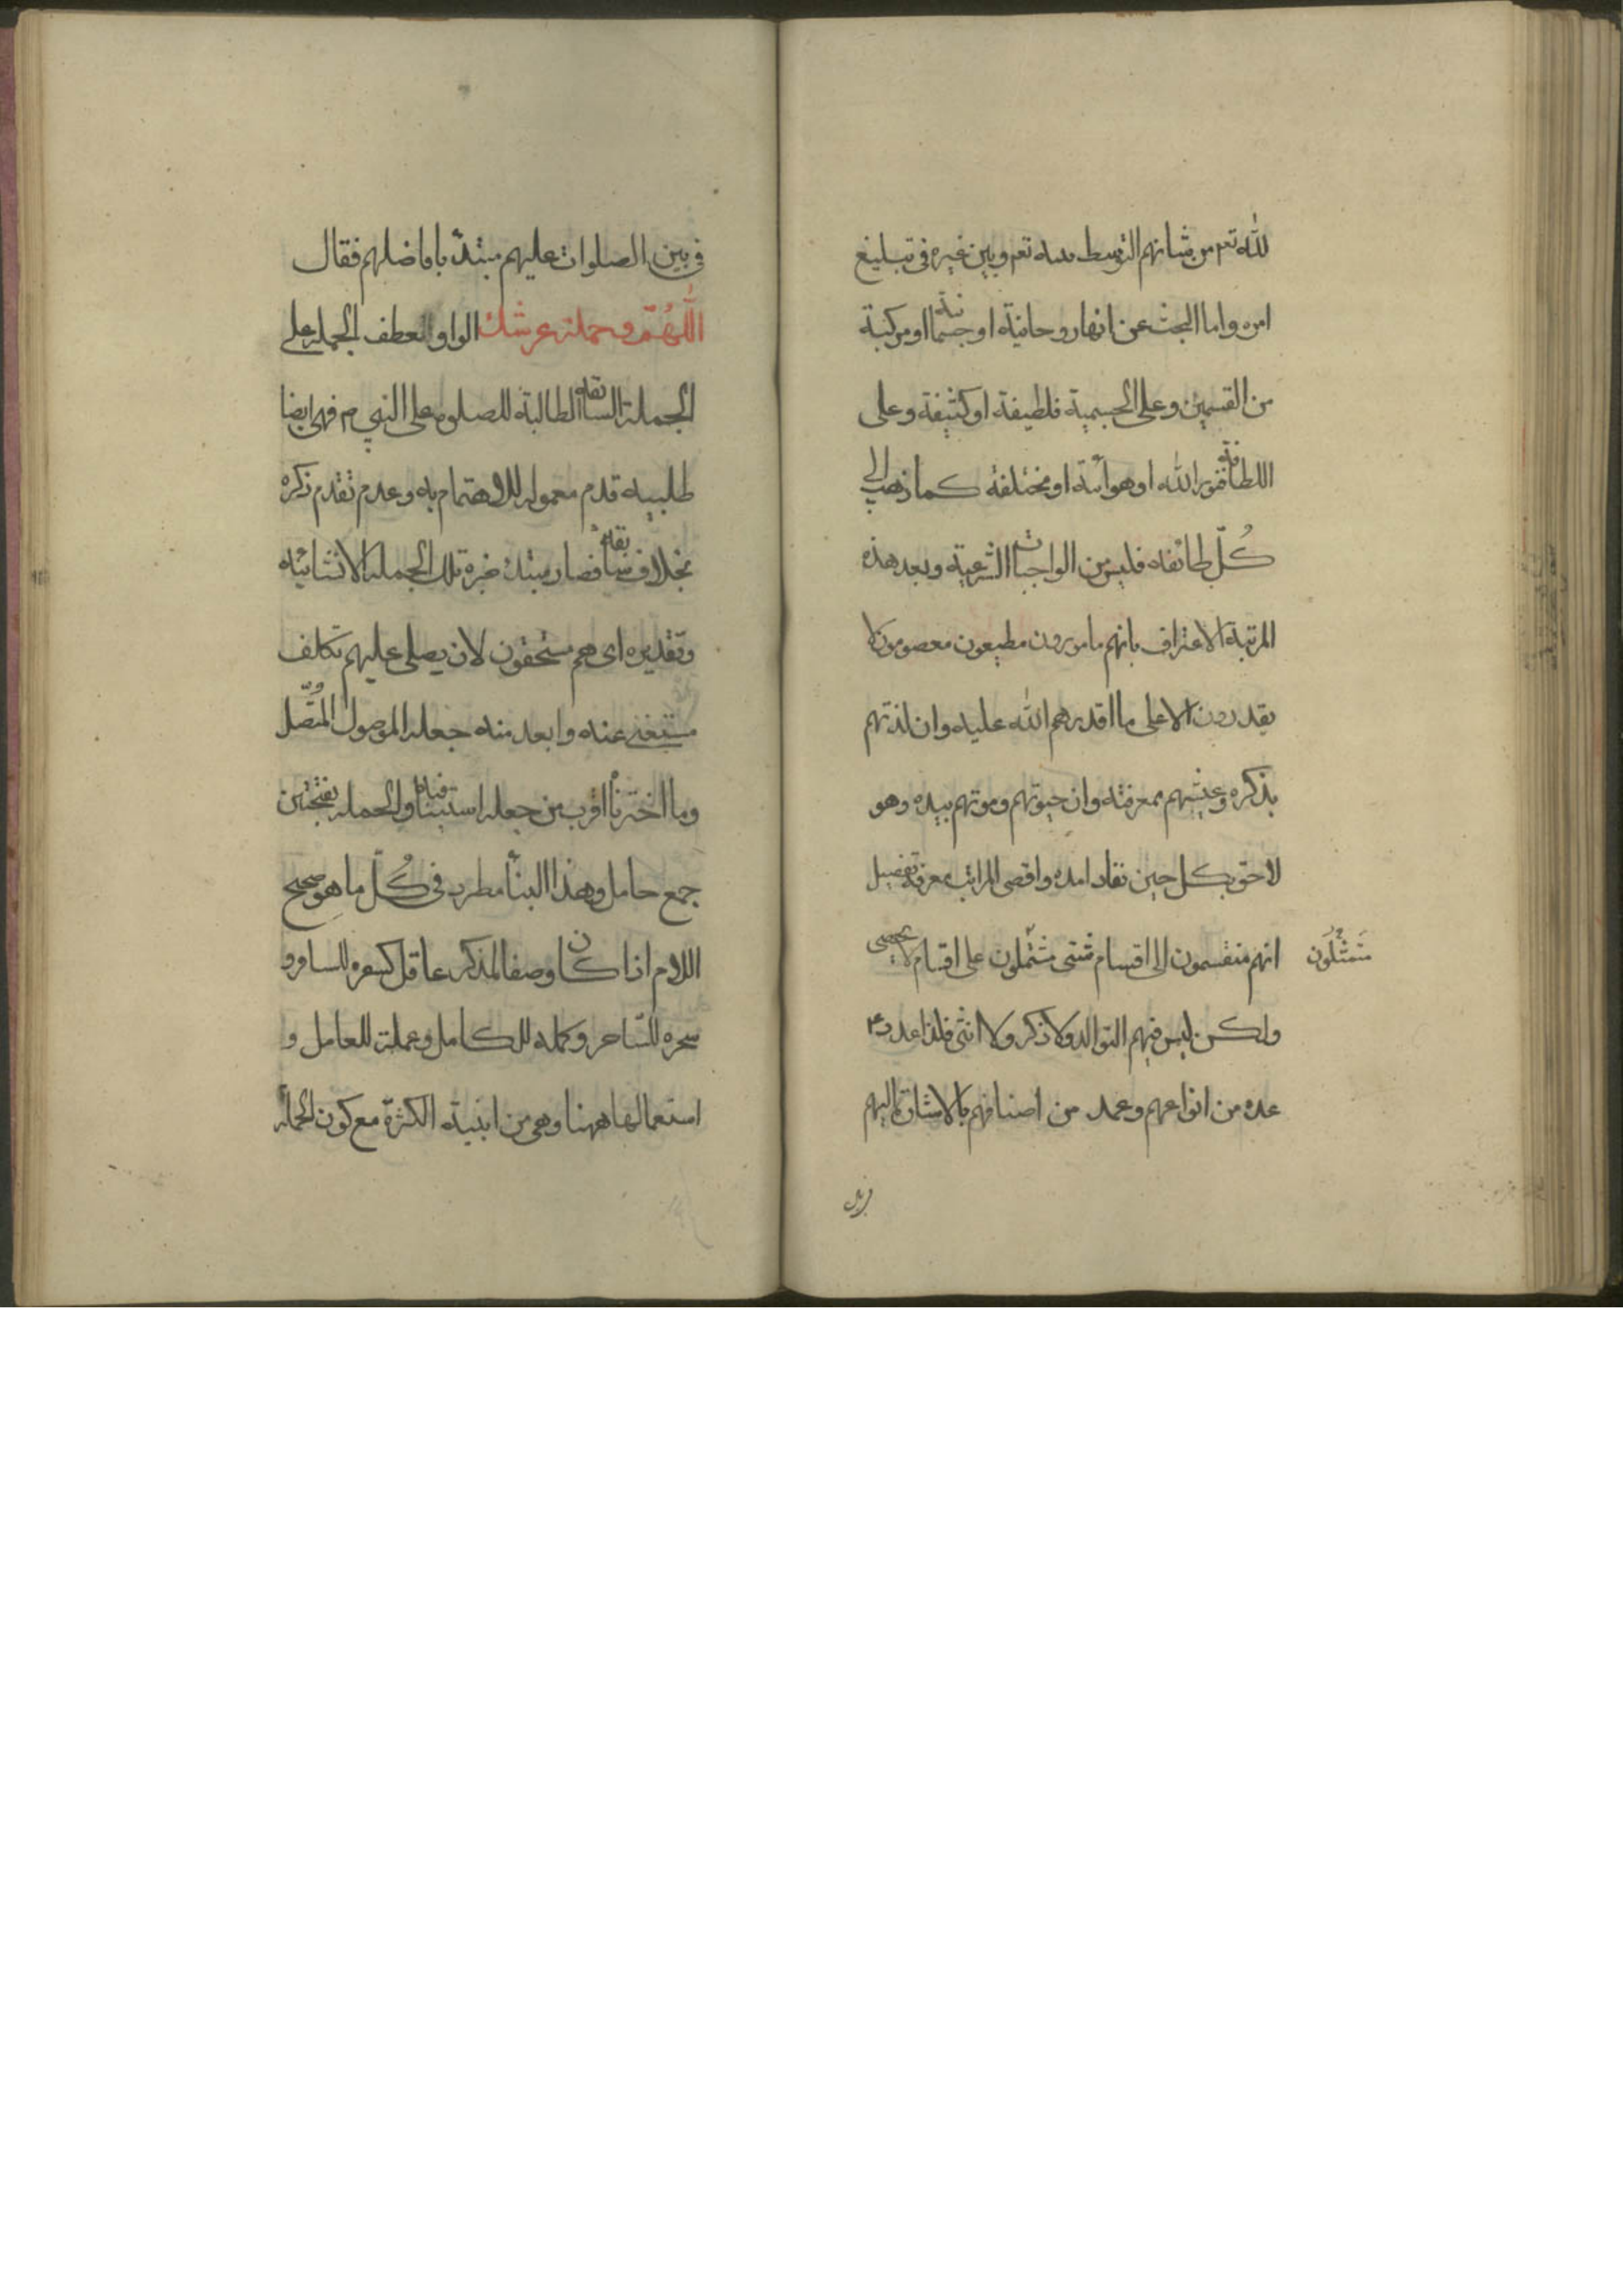 لله تعم من شانهم التوسط بينه تعم وبين غيره فى تبليغ
امره واما البحث عن انها روحانية او جسمانية او مركبة
من القسمين وعلى الجسمية فلطيفة او كثيفة وعلى
اللطافة فنورانيه او هوائية او مختلفة كما ذهب الى
كُلّ طائفه فليس من الواجبات الشرعية وبعد هذه
المرتبة الاعتراف بانهم مامورون مطيعون معصومون لا
يقدرون الا على ما اقدرهم الله عليه وان لذتهم
بذكره وعيشهم بمعرفته وان حيوتهم وموتهم بيده وهو
لاحق بكل حين نفاد امده واقصى المراتب معرفة تفصيل
انهم منقسمون الى اقسام شتى مشتملون على اقسام لا يحصى
متمثلون
ولكن ليس فيهم التوالد ولا ذكر ولا انثى فلذا عد د۴
عده من انواعهم وعمد من اصنافهم بالاشارة اليهم
فى بين الصلوات عليهم مبتدئا بافاضلهم فقال
اللّهُمّ وحملة عرشك الواو لعطف الجملة على
الجملة السابقة الطالبة للصلوة على النبى م فهى ايضا
طلبيه قدم معموله للاهتمام به وعدم تقدم ذكره
بخلاف سابقه فصار مبتدئ خبره تلك الجملة الانشائيه
وتقديره اى هم مستحقون لان يصلى عليهم تكلف
مستغنى عنه وابعد منه جعله الموصول المتّصل
وما اخترنا اقرب من جعله استينافيه والحملة بفتحتين
جمع حامل وهذا البنأ مطرد فى كُلّ ما هو صحيح
اللام اذا كان وصفا لمذكر عاقل كسفره للسافر و
سحره للسّاحر وكمله للكامل وعملة للعامل و
استعمالها ههنا وهى من ابنية الكثرة مع كون الحملة